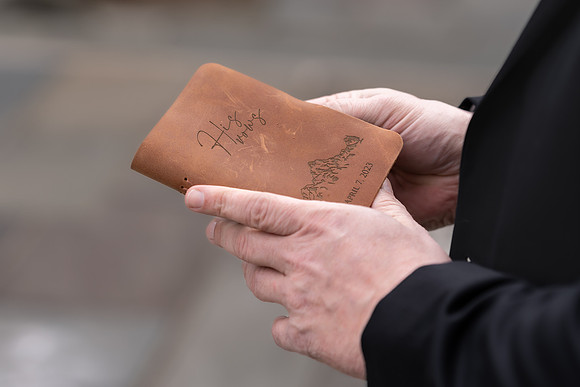 His
vows
APRIL 7, 2023